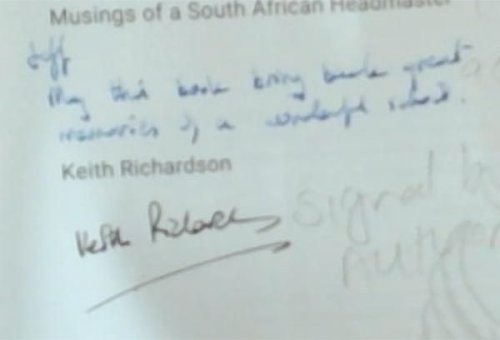 Musings of a South African Headmaster
May this book bring back great
memories of a wonderful school.
Keith Richardson
Keith Richardson
Signed by
Author